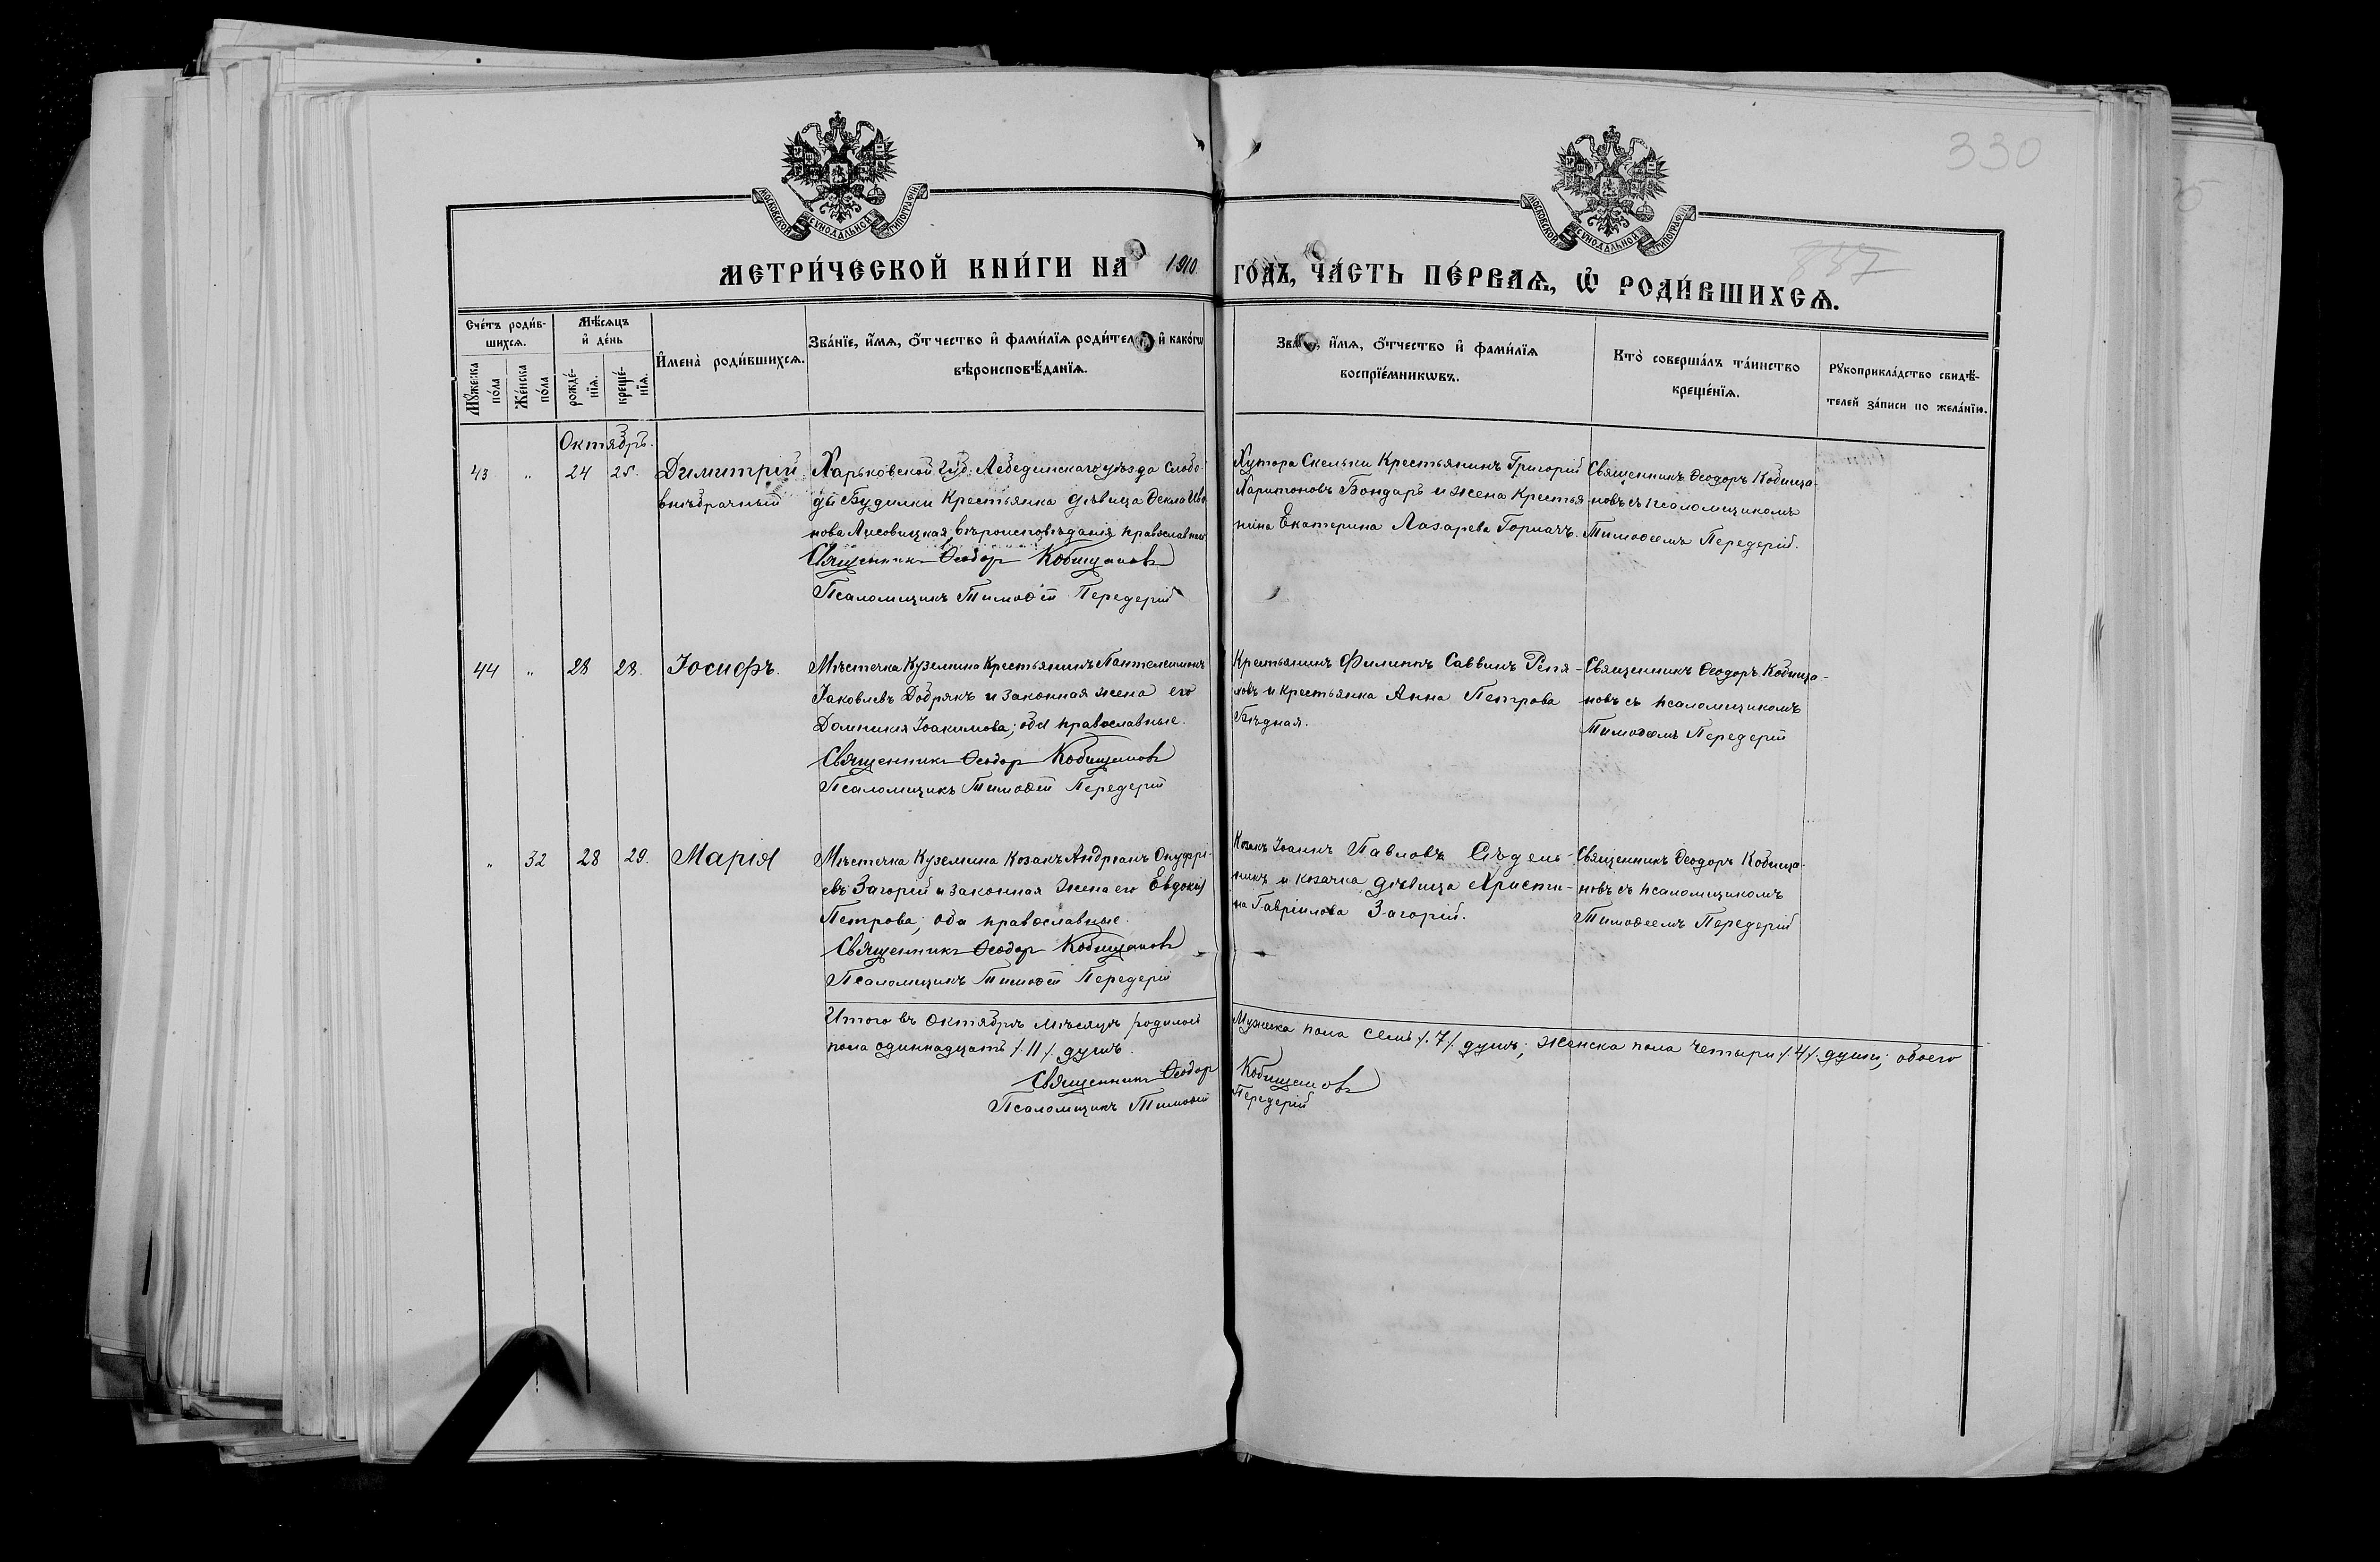 330
МОСКОВСКОЙ СѴНОДАЛЬНОЙ ТИПОГРАФІИ
МОСКОВСКОЙ СѴНОДАЛЬНОЙ ТИПОГРАФІИ
МЕТРИ́ЧЕСКОЙ КНИ́ГИ НА 1910 ГО́ДЪ, ЧА́СТЬ ПЕ́РВАѦ, Ѡ҆ РОДИ́ВШИХСѦ.
Сче́тъ роди́в-
шихсѧ.
Мꙋ́жеска по́ла
Же́нска по́ла
Мѣ́сѧцъ
и҆ де́нь
рожде́-
нїѧ.
креще́-
нїѧ.
И҆мена̀ роди́вшихсѧ.
Зва́нїе, и҆́мѧ, ѻ҆́тчество и҆ фами́лїѧ роди́тел и҆ како́гѡ
вѣроисповѣ́данїѧ.
Зва , и҆́мѧ, ѻ҆́тчество и҆ фами́лїѧ
воспрїе́мникѡвъ.
Кто̀ соверша́лъ та́инство
креще́нїѧ.
Рꙋкоприкла́дство свидѣ́-
телей за́писи по жела́нїю.
Октябрь.
43 " 24 25. Димитрій
внѣбрачный
Харьковской губ: Лебединскаго уѣзда Слобо-
ды Будилки Крестьянка дѣвица Ѳекла Ива-
нова Лисовицкая, вѣроисповѣданія православнаго
Священникъ Ѳеодоръ Кобищановъ
Псаломщикъ Тимоѳей Передерій
Хутора Скельки Крестьянинъ Григорій
Харитоновъ Бондарь и жена крестья-
нина Екатерина Лазарева Горкачъ.
Священникъ Ѳеодоръ Кобища-
новъ съ псаломщикомъ
Тимоѳеемъ Передерій.
44 " 28 28. Іосифъ.
Мѣстечка Куземина Крестьянинъ Пантелеимонъ
Іаковлевъ Добрякъ и законная жена его
Домникія Іоакимова; оба православные.
Священникъ Ѳеодоръ Кобищановъ
Псаломщикъ Тимоѳей Передерій
Крестьянинъ Филиппъ Саввинъ Репя-
ховъ и крестьянка Анна Петрова
Бѣдная.
Священникъ Ѳеодоръ Кобища-
новъ съ псаломщикомъ
Тимоѳеемъ Передерій
" 32 28 29. Марія
Мѣстечка Куземина Козакъ Андріанъ Онуфрі-
евъ Загорій и законная жена его Евдокія
Петрова; оба православные.
Священникъ Ѳеодоръ Кобищановъ
Псаломщикъ Тимоѳей Передерій
Козакъ Іоаннъ Павловъ Сѣдель-
никъ и козачка дѣвица Христи-
на Гавріилова Загорій.
Священникъ Ѳеодоръ Кобища-
новъ съ псаломщикомъ
Тимоѳеемъ Передерій
Итого въ Октябрѣ мѣсяцѣ родилось Мужеска пола семь /.7/. душъ; женска пола четыри /.4/. души; обоего
пола одиннадцать /.11/. душъ.
Священникъ Ѳеодоръ Кобищановъ
Псаломщикъ Тимоѳей Передерій